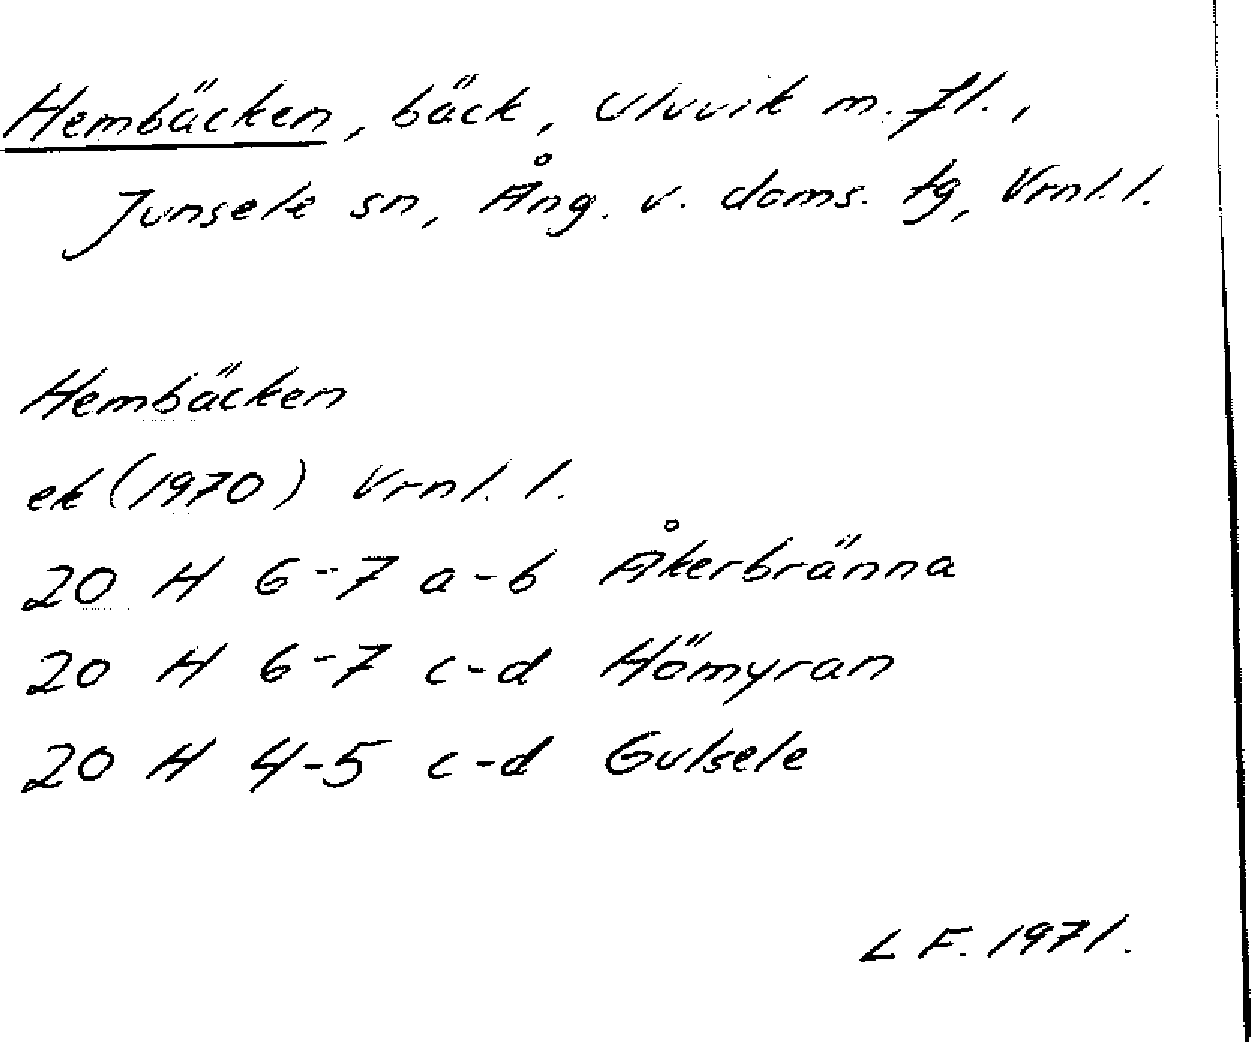 Hembäcken, bäck, Ulvvik m. fl.,
Junsele sn, Ång. v. doms. tg, Vrnl. l.
Hembäcken
ek (1970) Vrnl. l.
20 H 6-7 a-b Åkerbränna
20 H 6-7 c-d Hömyran
20 H 4-5 c-d Gulsele
L F. 1971.